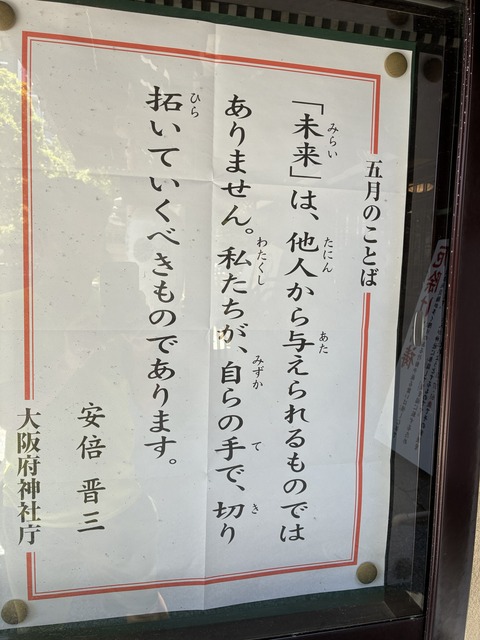 五月のことば
「未来」は、他人から与えられるものでは
ありません。私たちが、自らの手で、切り
拓いていくべきものであります。
安倍晋三
大阪府神社庁
みらい
たにん
あた
わたくし
みずか
て
き
ひら